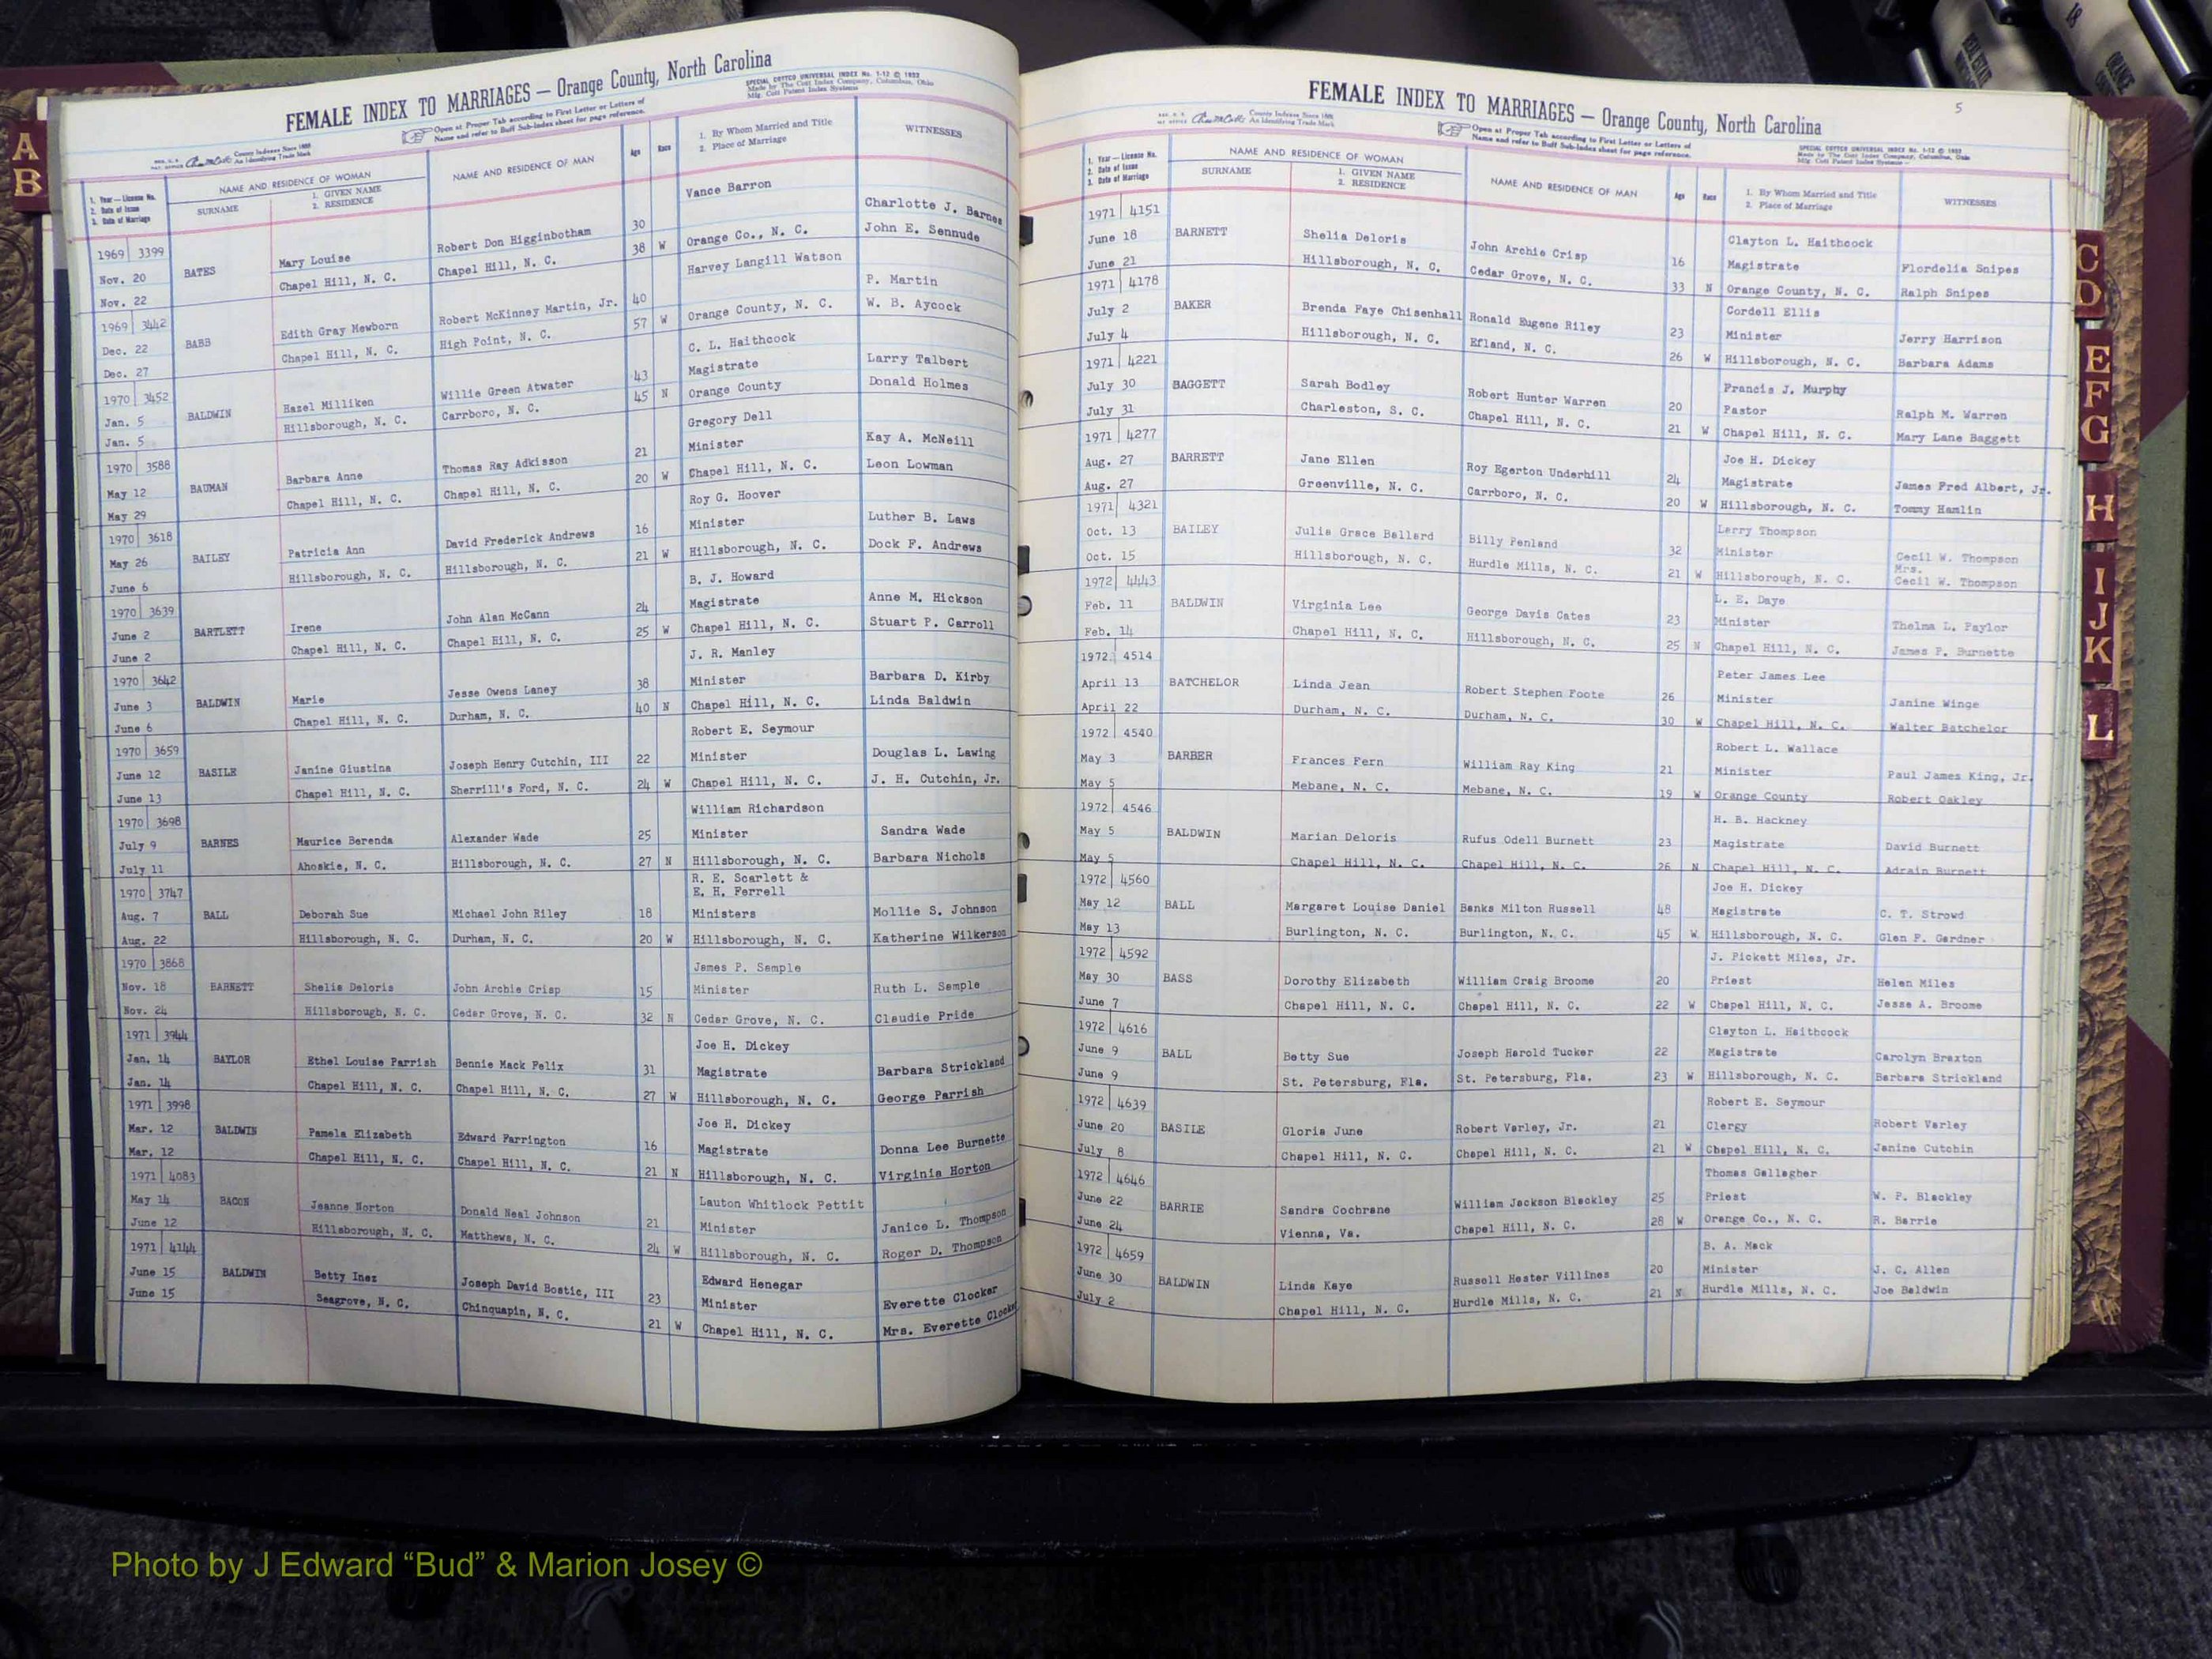 FEMALE INDEX TO MARRIAGES — Orange County, North Carolina
SPECIAL COTTCO UNIVERSAL INDEX No. 1-12 © 1932
Made by The Cott Index Company, Columbus, Ohio
Mfg. Cott Patent Index Systems
Open at Proper Tab according to First Letter or Letters of
Name and refer to Buff Sub-Index sheet for page reference.
County Indexes Since 1888
An Identifying Trade Mark
1. Year — License No.
2. Date of Issue
3. Date of Marriage
NAME AND RESIDENCE OF WOMAN
SURNAME
1. GIVEN NAME
2. RESIDENCE
NAME AND RESIDENCE OF MAN
Age
Race
1. By Whom Married and Title
2. Place of Marriage
WITNESSES
Vance Barron
1969 3399 Robert Don Higginbotham 30 Charlotte J. Barnes
Nov. 20 BATES Mary Louise Chapel Hill, N. C. 38 W Orange Co., N. C. John E. Sennude
Nov. 22 Chapel Hill, N. C.
Harvey Langill Watson
1969 3442 Robert McKinney Martin, Jr. 40 P. Martin
Dec. 22 BABB Edith Gray Mewborn High Point, N. C. 57 W Orange County, N. C. W. B. Aycock
Dec. 27 Chapel Hill, N. C.
C. L. Haithcock
1970 3452 Hazel Milliken Willie Green Atwater 43 Magistrate Larry Talbert
Jan. 5 BALDWIN Hillsborough, N. C. Carrboro, N. C. 45 N Orange County Donald Holmes
Jan. 5
Gregory Dell
1970 3588 Barbara Anne Thomas Ray Adkisson 21 Minister Kay A. McNeill
May 12 BAUMAN Chapel Hill, N. C. Chapel Hill, N. C. 20 W Chapel Hill, N. C. Leon Lowman
May 29
Roy G. Hoover
1970 3618 Patricia Ann David Frederick Andrews 16 Minister Luther B. Laws
May 26 BAILEY Hillsborough, N. C. Hillsborough, N. C. 21 W Hillsborough, N. C. Dock F. Andrews
June 6
B. J. Howard
1970 3639 Irene John Alan McCann 24 Magistrate Anne M. Hickson
June 2 BARTLETT Chapel Hill, N. C. Chapel Hill, N. C. 25 W Chapel Hill, N. C. Stuart P. Carroll
June 2
J. R. Manley
1970 3642 Marie Jesse Owens Laney 38 Minister Barbara D. Kirby
June 3 BALDWIN Chapel Hill, N. C. Durham, N. C. 40 N Chapel Hill, N. C. Linda Baldwin
June 6
Robert E. Seymour
1970 3659 Janine Giustina Joseph Henry Cutchin, III 22 Minister Douglas L. Lawing
June 12 BASILE Chapel Hill, N. C. Sherrill's Ford, N. C. 24 W Chapel Hill, N. C. J. H. Cutchin, Jr.
June 13
William Richardson
1970 3698 Maurice Berenda Alexander Wade 25 Minister Sandra Wade
July 9 BARNES Ahoskie, N. C. Hillsborough, N. C. 27 N Hillsborough, N. C. Barbara Nichols
July 11
R. E. Scarlett &
E. H. Ferrell
1970 3747
Aug. 7 BALL Deborah Sue Michael John Riley 18 Ministers Mollie S. Johnson
Aug. 22 Hillsborough, N. C. Durham, N. C. 20 W Hillsborough, N. C. Katherine Wilkerson
1970 3868 James P. Semple
Nov. 18 BARNETT Shelia Deloris John Archie Crisp 15 Minister Ruth L. Semple
Nov. 24 Hillsborough, N. C. Cedar Grove, N. C. 32 N Cedar Grove, N. C. Claudie Pride
1971 3944 Joe H. Dickey
Jan. 14 BAYLOR Ethel Louise Parrish Bennie Mack Felix 31 Magistrate Barbara Strickland
Jan. 14 Chapel Hill, N. C. Chapel Hill, N. C. 27 W Hillsborough, N. C. George Parrish
1971 3998 Joe H. Dickey
Mar. 12 BALDWIN Pamela Elizabeth Edward Farrington 16 Magistrate Donna Lee Burnette
Mar. 12 Chapel Hill, N. C. Chapel Hill, N. C. 21 N Hillsborough, N. C. Virginia Horton
1971 4083 Lauton Whitlock Pettit
May 14 BACON Jeanne Norton Donald Neal Johnson 21 Minister Janice L. Thompson
June 12 Hillsborough, N. C. Matthews, N. C. 24 W Hillsborough, N. C. Roger D. Thompson
1971 4144 Edward Henegar
June 15 BALDWIN Betty Inez Joseph David Bostic, III 23 Minister Everette Clocker
June 15 Seagrove, N. C. Chinquapin, N. C. 21 W Chapel Hill, N. C. Mrs. Everette
5
FEMALE INDEX TO MARRIAGES — Orange County, North Carolina
County Indexes Since 1888
An Identifying Trade Mark
Open at Proper Tab according to First Letter or Letters of
Name and refer to Buff Sub-Index sheet for page reference.
SPECIAL COTTCO UNIVERSAL INDEX No. 1-12 © 1932
Made by The Cott Index Company, Columbus, Ohio
Mfg. Cott Patent Index Systems
1. Year — License No.
2. Date of Issue
3. Date of Marriage
NAME AND RESIDENCE OF WOMAN
SURNAME
1. GIVEN NAME
2. RESIDENCE
NAME AND RESIDENCE OF MAN
Age
Race
1. By Whom Married and Title
2. Place of Marriage
WITNESSES
1971 4151 Clayton L. Haithcock
June 18 BARNETT Shelia Deloris John Archie Crisp 16 Magistrate Flordelia Snipes
June 21 Hillsborough, N. C. Cedar Grove, N. C. 33 N Orange County, N. C. Ralph Snipes
1971 4178 Cordell Ellis
July 2 BAKER Brenda Faye Chisenhall Ronald Eugene Riley 23 Minister Jerry Harrison
July 4 Hillsborough, N. C. Efland, N. C. 26 W Hillsborough, N. C. Barbara Adams
1971 4221 Francis J. Murphy
July 30 BAGGETT Sarah Bodley Robert Hunter Warren 20 Pastor Ralph M. Warren
July 31 Charleston, S. C. Chapel Hill, N. C. 21 W Chapel Hill, N. C. Mary Lane Baggett
1971 4277 Joe H. Dickey
Aug. 27 BARRETT Jane Ellen Roy Egerton Underhill 24 Magistrate James Fred Albert, Jr.
Aug. 27 Greenville, N. C. Carrboro, N. C. 20 W Hillsborough, N. C. Tommy Hamlin
1971 4321 Larry Thompson
Oct. 13 BAILEY Julie Grace Ballard Billy Penland 32 Minister Cecil W. Thompson
Mrs.
Oct. 15 Hillsborough, N. C. Hurdle Mills, N. C. 21 W Hillsborough, N. C. Cecil W. Thompson
1972 4443 L. E. Daye
Feb. 11 BALDWIN Virginia Lee George Davis Cates 23 Minister Thelma L. Paylor
Feb. 14 Chapel Hill, N. C. Hillsborough, N. C. 25 N Chapel Hill, N. C. James P. Burnette
1972 4514 Peter James Lee
April 13 BATCHELOR Linda Jean Robert Stephen Foote 26 Minister Janine Winge
April 22 Durham, N. C. Durham, N. C. 30 W Chapel Hill, N. C. Walter Batchelor
1972 4540 Robert L. Wallace
May 3 BARBER Frances Fern William Ray King 21 Minister Paul James King, Jr.
May 5 Mebane, N. C. Mebane, N. C. 19 W Orange County Robert Oakley
1972 4546 H. B. Hackney
May 5 BALDWIN Marian Deloris Rufus Odell Burnett 23 Magistrate David Burnett
May 5 Chapel Hill, N. C. Chapel Hill, N. C. 26 N Chapel Hill, N. C. Adrain Burnett
1972 4560 Joe H. Dickey
May 12 BALL Margaret Louise Daniel Banks Milton Russell 48 Magistrate C. T. Strowd
May 13 Burlington, N. C. Burlington, N. C. 45 W Hillsborough, N. C. Glen F. Gardner
1972 4592 J. Pickett Miles, Jr.
May 30 BASS Dorothy Elizabeth William Craig Broome 20 Priest Helen Miles
June 7 Chapel Hill, N. C. Chapel Hill, N. C. 22 W Chapel Hill, N. C. Jesse A. Broome
1972 4616 Clayton L. Haithcock
June 9 BALL Betty Sue Joseph Harold Tucker 22 Magistrate Carolyn Braxton
June 9 St. Petersburg, Fla. St. Petersburg, Fla. 23 W Hillsborough, N. C. Barbara Strickland
1972 4639 Robert E. Seymour
June 20 BASILE Gloria June Robert Varley, Jr. 21 Clergy Robert Varley
July 8 Chapel Hill, N. C. Chapel Hill, N. C. 21 W Chapel Hill, N. C. Janine Cutchin
1972 4646 Thomas Gallagher
June 22 BARRIE Sandra Cochrane William Jackson Blackley 25 Priest W. P. Blackley
June 24 Vienna, Va. Chapel Hill, N. C. 28 W Orange Co., N. C. R. Barrie
1972 4659 B. A. Mack
June 30 BALDWIN Linda Kaye Russell Hester Villines 20 Minister J. C. Allen
July 2 Chapel Hill, N. C. Hurdle Mills, N. C. 21 N Hurdle Mills, N. C. Joe Baldwin
A
B
C
D
E
F
G
H
I
J
K
L
18
ORANGE
Photo by J Edward “Bud” & Marion Josey ©